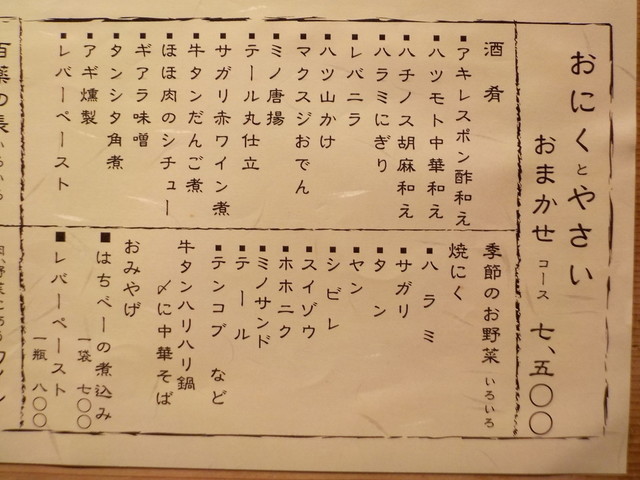 おにくとやさい
おまかせ コース 七、五〇〇
酒肴
■アキレスポン酢和え
■ハツモト中華和え
■ハチノス胡麻和え
■ハラミにぎり
■レバニラ
■ハツ山かけ
■マクスジおでん
■ミノ唐揚
■テール丸仕立
■サガリ赤ワイン煮
■牛タンだんご煮
■ほほ肉のシチュー
■ギアラ味噌
■タンシタ角煮
■アギ燻製
■レバーペースト
季節のお野菜 いろいろ
焼にく
■ハラミ
■サガリ
■タン
■ヤン
■シビレ
■スイゾウ
■ホホニク
■ミノサンド
■テール
■テンコプ など
牛タンハリハリ鍋
〆に中華そば
おみやげ
■はちペーの煮込み 一袋 七〇〇
■レバーペースト 一瓶 八〇〇
百薬の長 いろいろ